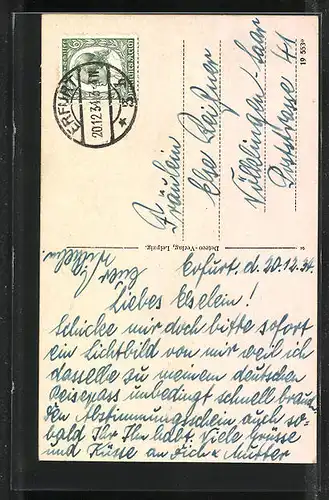 ERFURT
20.12.34
Fräulein
Else Reißner
Völklingen-Saar
Poststrasse 41
19 553
Dotzeo-Verlag, Leipzig.
Erfurt, d. 20.12.34.
Liebes Elselein!
Schicke mir doch bitte sofort
ein Lichtbild von mir weil ich
dasselbe zu meinem deutschen
Reisepass unbedingt schnell brauche
den Abstimmungsschein auch so-
bald Ihr ihn habt. Viele Grüsse
und Küsse an Dich u. Mutter
Euer